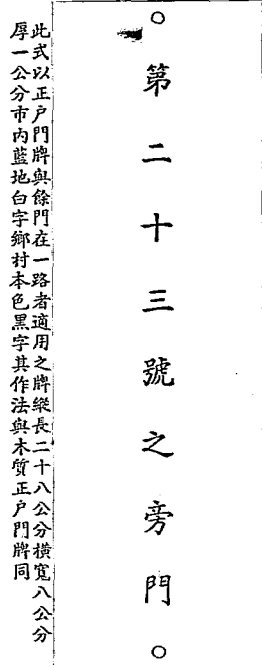 ○第二十三號之旁門○
此式以正户門牌與餘門在一路者適用之牌縱長二十八公分橫寬八公分
厚一公分市内藍地白字鄉村本色黑字其作法與木質正户門牌同